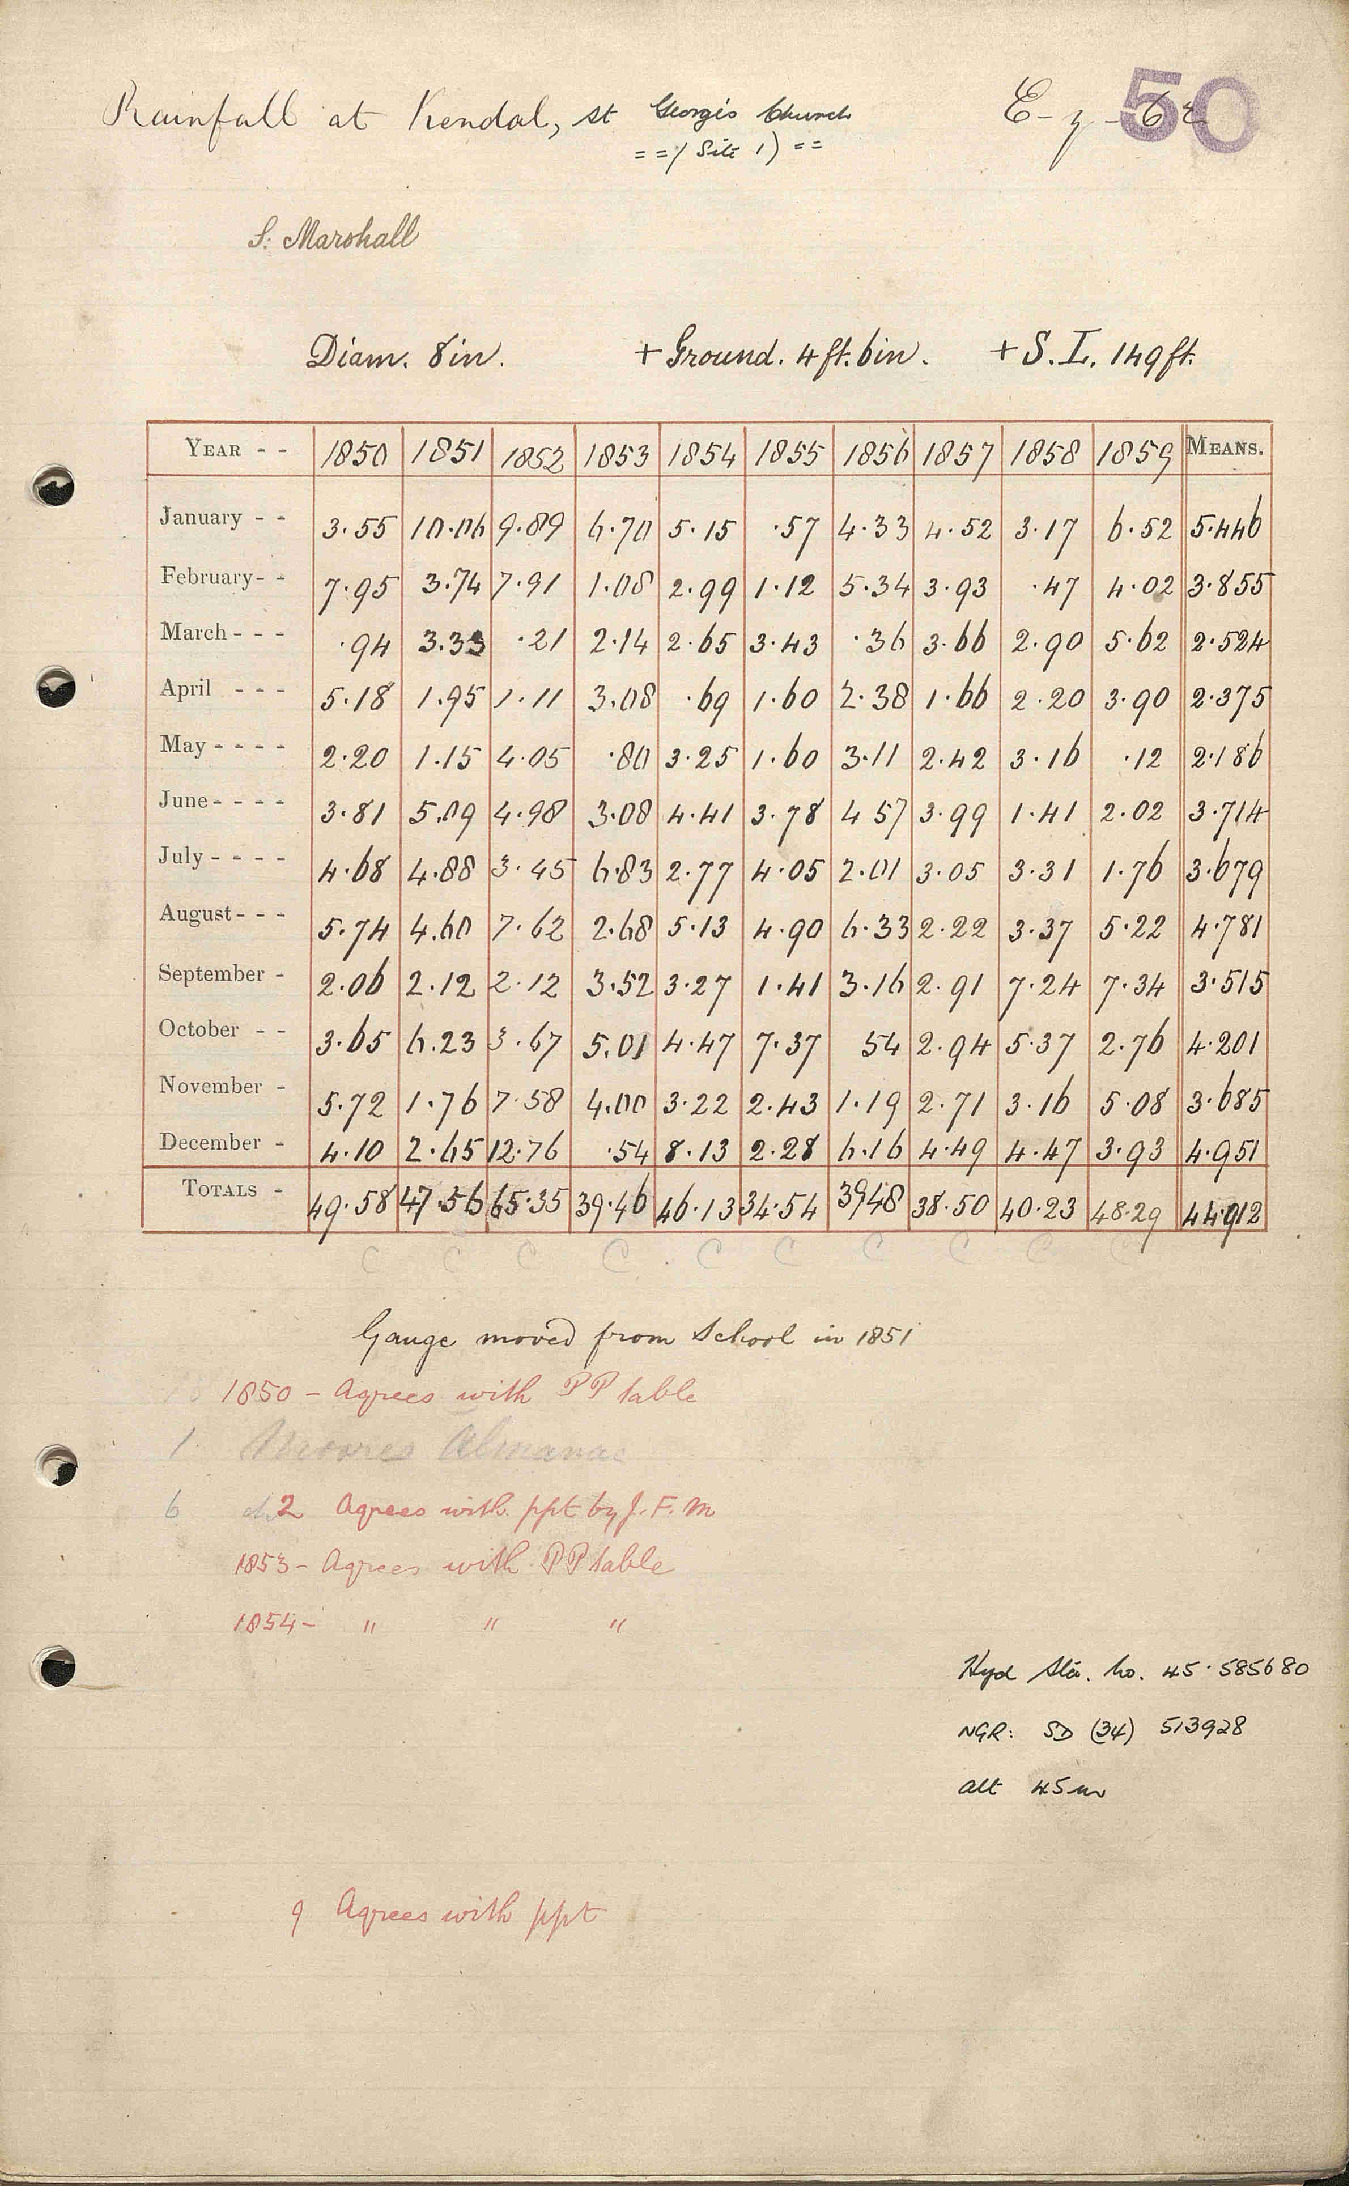 Rainfall at Kendal, St George's Church
50
= = ( Site 1 ) = =
S. Marshall
Diam. 8in. + Ground. 4ft. 6in. + S. L. 149ft.
YEAR - - 1850 1851 1852 1853 1854 1855 1856 1857 1858 1859 MEANS.
January - - 3.55 10.06 9.89 6.70 5.15 .57 4.33 4.52 3.17 6.52 5.446
February - - 7.95 3.74 7.91 1.08 2.99 1.12 5.34 3.93 .47 4.02 3.855
March - - - .94 3.33 .21 2.14 2.65 3.43 .36 3.66 2.90 5.62 2.524
April - - - 5.18 1.95 1.11 3.08 .69 1.60 2.38 1.66 2.20 3.90 2.375
May - - - - 2.20 1.15 4.05 .80 3.25 1.60 3.11 2.42 3.16 .12 2.186
June - - - - 3.81 5.09 4.98 3.08 4.41 3.78 4 57 3.99 1.41 2.02 3.714
July - - - - 4.68 4.88 3.45 6.83 2.77 4.05 2.01 3.05 3.31 1.76 3.679
August - - - 5.74 4.60 7.62 2.68 5.13 4.90 6.33 2.22 3.37 5.22 4.781
September - 2.06 2.12 2.12 3.52 3.27 1.41 3.16 2.91 7.24 7.34 3.515
October - - 3.65 6.23 3.67 5.01 4.47 7.37 54 2.94 5.37 2.76 4.201
November - 5.72 1.76 7.58 4.00 3.22 2.43 1.19 2.71 3.16 5.08 3.685
December - 4.10 2.65 12.76 .54 8.13 2.28 6.16 4.49 4.47 3.93 4.951
TOTALS - 49.58 47.56 65.35 39.46 46.13 34.54 3948 38.50 40.23 48.29 44.912
C C C C C C C C C C
Gauge moved from School in 1851
1850 - Agrees with PP table
1 Moores Almanac
6 2 Agrees with ppt by J. F. M
1853 - Agrees with PP table
1854 - " " "
Hyd Sta. No. 45.585680
NGR: SD (34) 513928
alt 45m
9 Agrees with ppt